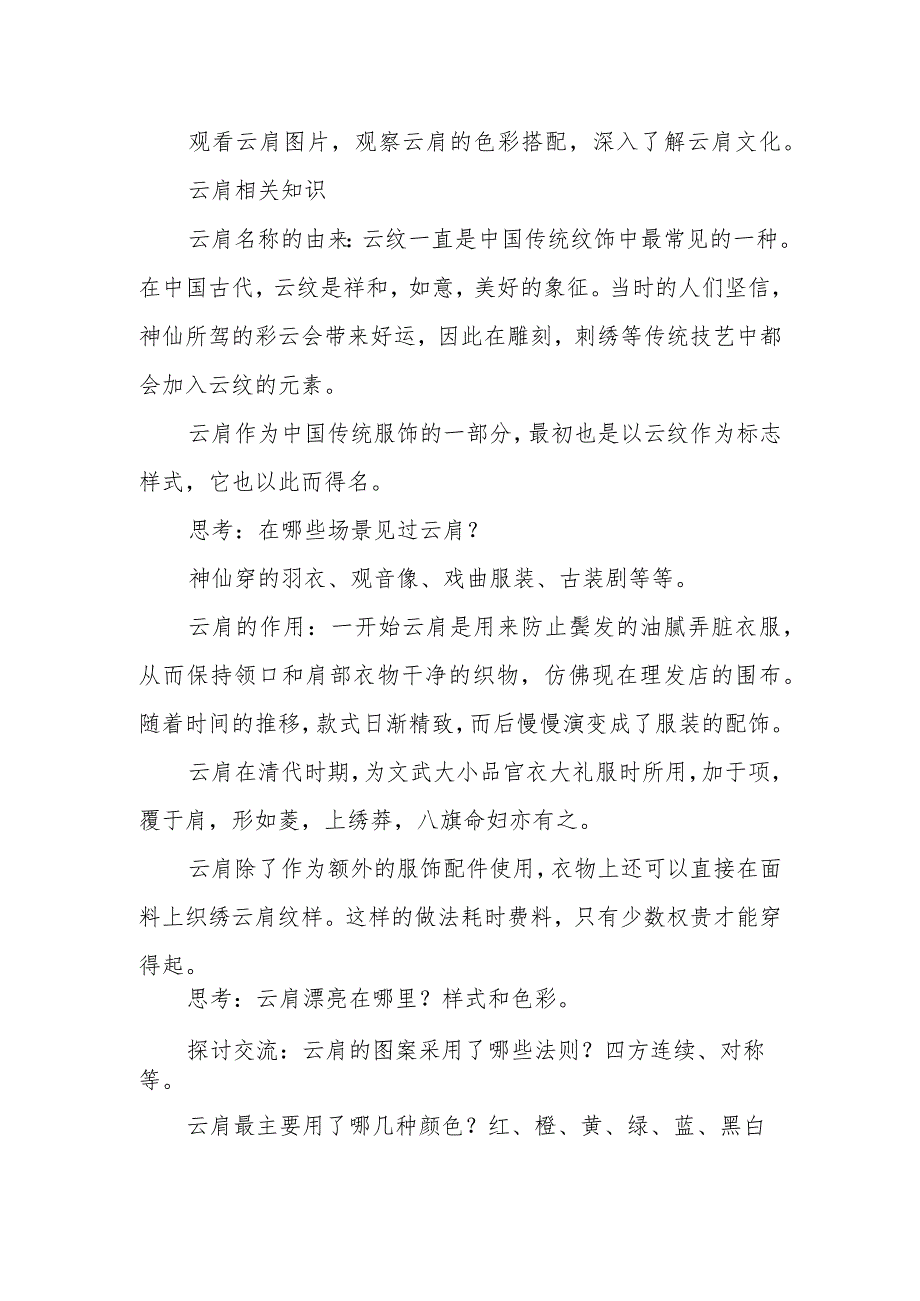 观看云肩图片，观察云肩的色彩搭配，深入了解云肩文化。
云肩相关知识
云肩名称的由来：云纹一直是中国传统纹饰中最常见的一种。
在中国古代，云纹是祥和，如意，美好的象征。当时的人们坚信，
神仙所驾的彩云会带来好运，因此在雕刻，刺绣等传统技艺中都
会加入云纹的元素。
云肩作为中国传统服饰的一部分，最初也是以云纹作为标志
样式，它也以此而得名。
思考：在哪些场景见过云肩？
神仙穿的羽衣、观音像、戏曲服装、古装剧等等。
云肩的作用：一开始云肩是用来防止鬓发的油腻弄脏衣服，
从而保持领口和肩部衣物干净的织物，仿佛现在理发店的围布。
随着时间的推移，款式日渐精致，而后慢慢演变成了服装的配饰。
云肩在清代时期，为文武大小品官衣大礼服时所用，加于项，
覆于肩，形如菱，上绣莽，八旗命妇亦有之。
云肩除了作为额外的服饰配件使用，衣物上还可以直接在面
料上织绣云肩纹样。这样的做法耗时费料，只有少数权贵才能穿
得起。
思考：云肩漂亮在哪里？样式和色彩。
探讨交流：云肩的图案采用了哪些法则？四方连续、对称
等。
云肩最主要用了哪几种颜色？红、橙、黄、绿、蓝、黑白